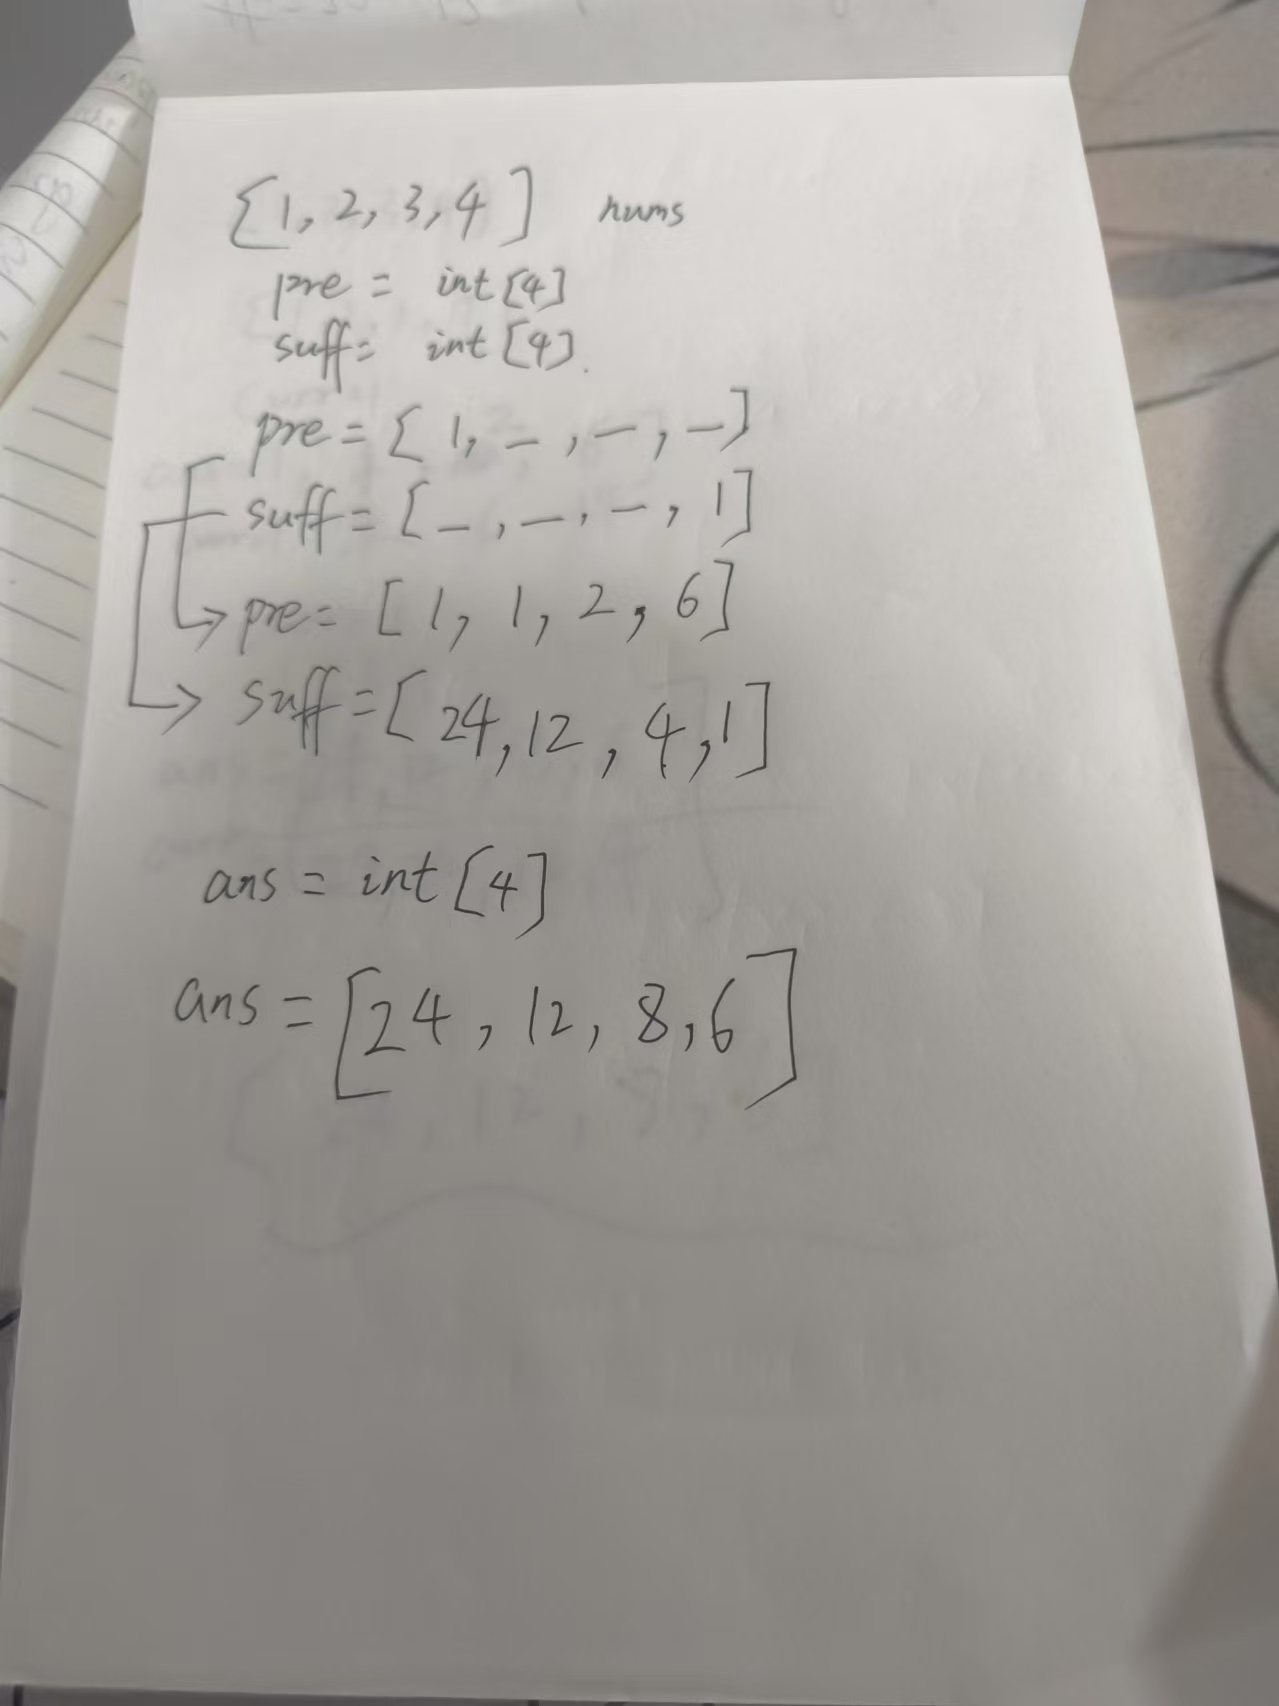 [1, 2, 3, 4] nums
pre = int[4]
suff = int[4].
pre = [1, _, _, _]
suff = [_, _, _, 1]
pre = [1, 1, 2, 6]
suff = [24, 12, 4, 1]
ans = int[4]
ans = [24, 12, 8, 6]